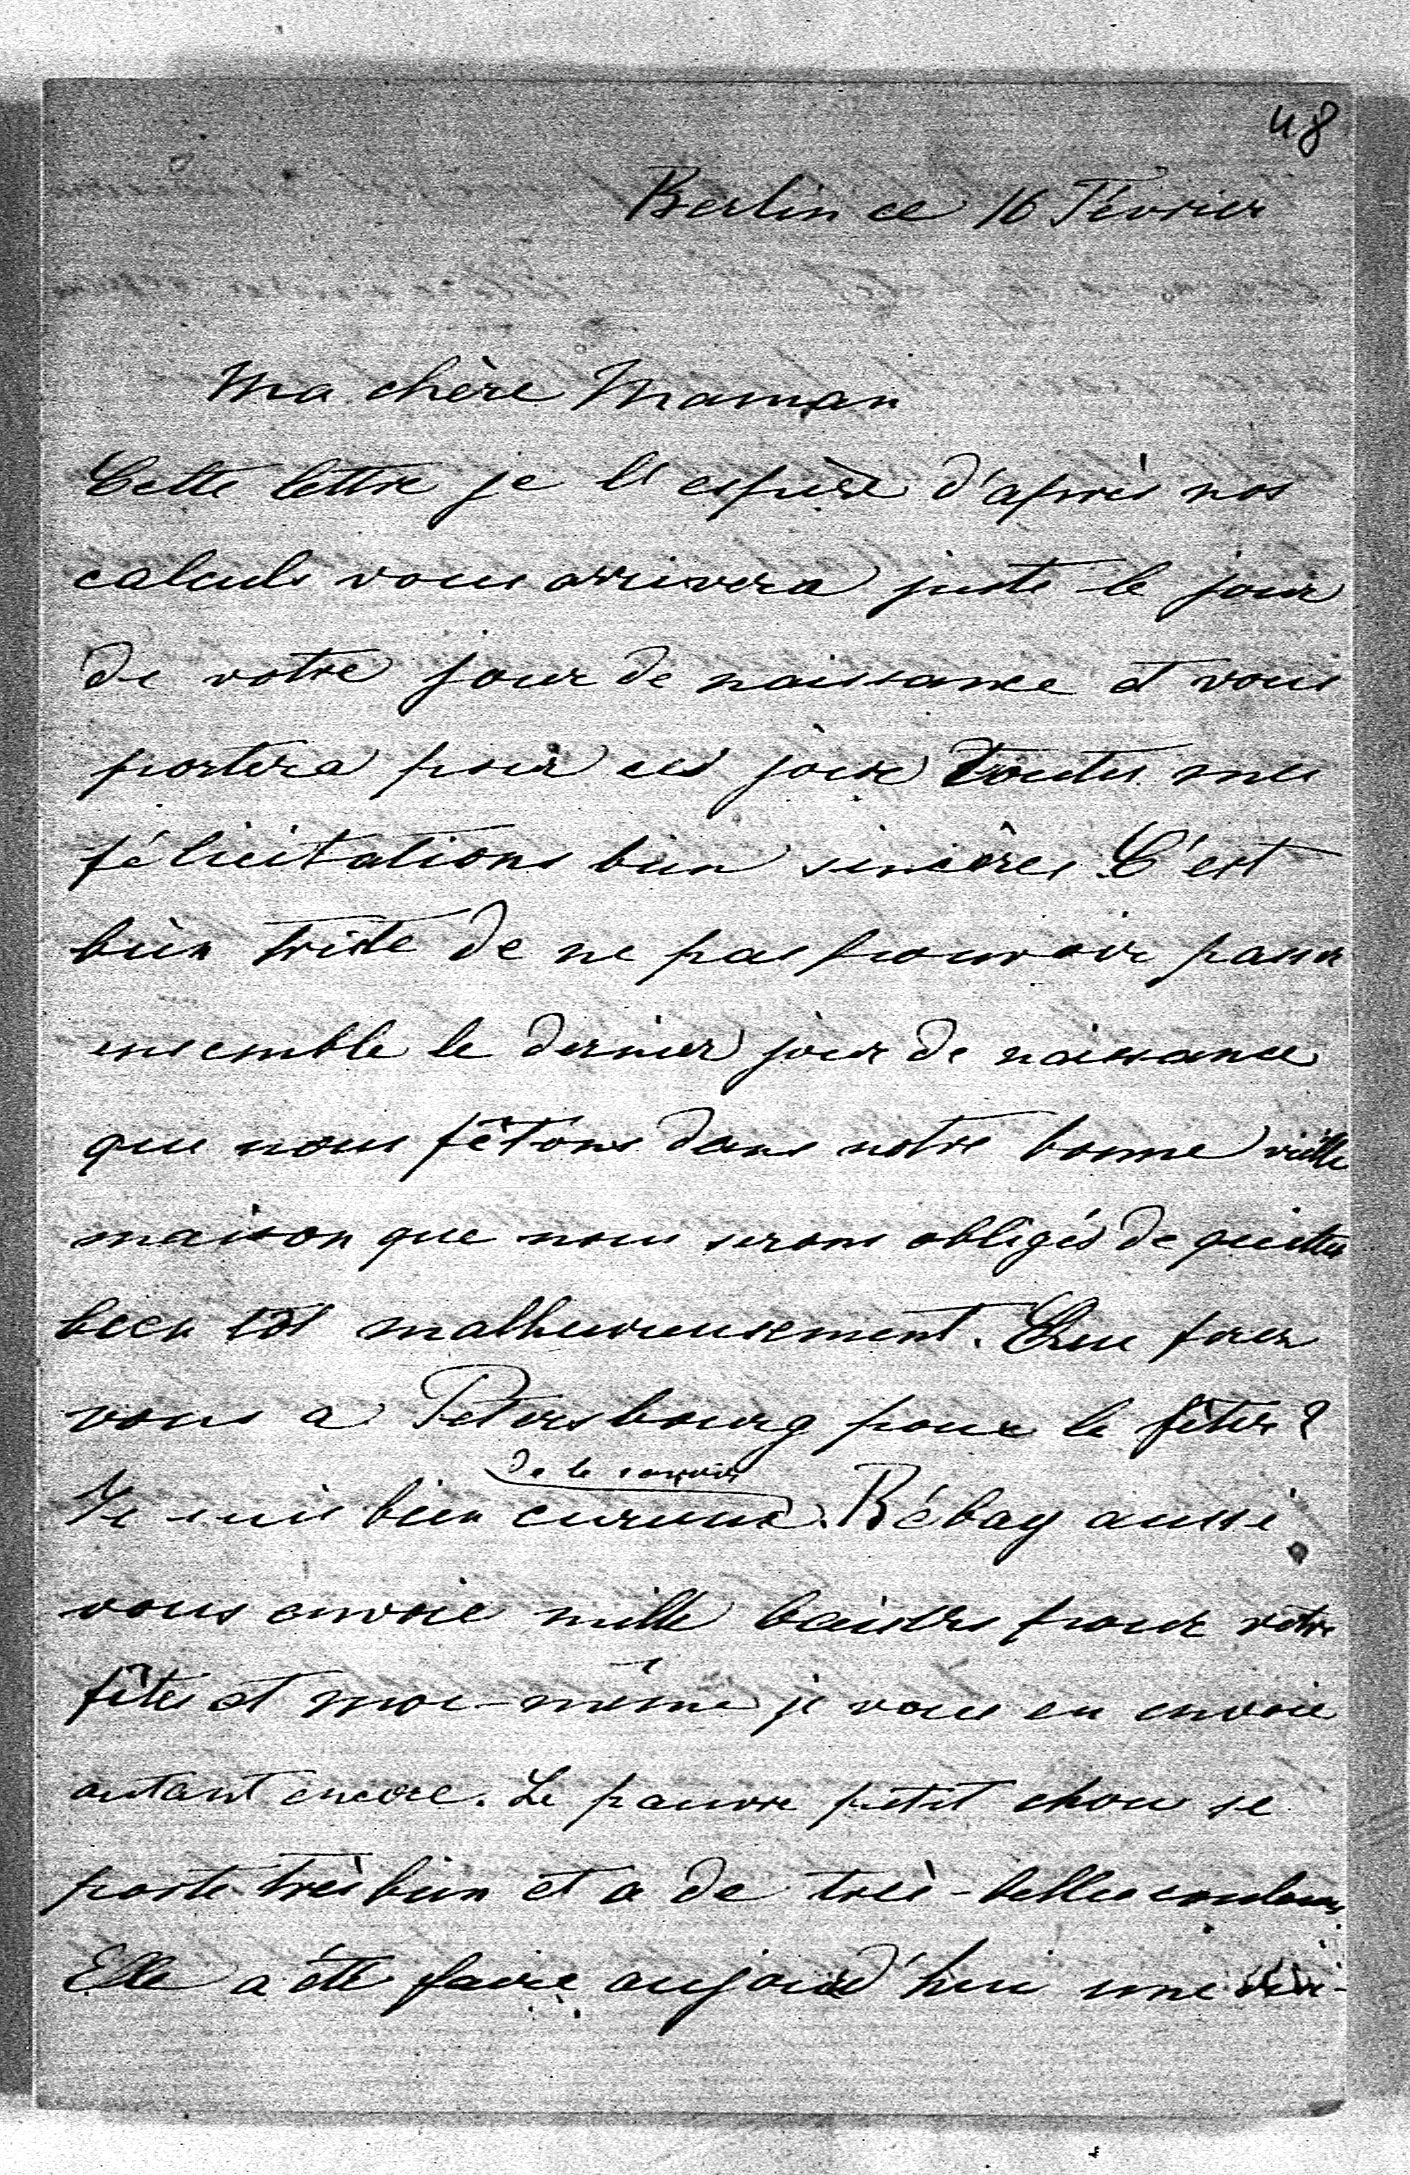 48
Berlin ce 16 Février
Ma chère Maman
Cette lettre je l'espère d'après nos
calculs vous arrivera juste le jour
de votre jour de naissance et vous
portera pour ces jour toutes mes
félicitations bien sincères. C'est
bien triste de ne pas pouvoir passer
ensemble le dernier jour de naissance
que nous fêtons dans notre bonne vieille
maison que nous serons obligés de quitter
bien tôt malheureusement. Que ferez
vous a Petersbourg pour le fêter?
de le savoir
Je suis bien curieuse. Bébay aussi
vous envoie mille baisers pour votre
fête et moi-même je vous en envoie
autant encore. Le pauvre petit chou se
porte très bien et a de très-belles couleurs
Elle a été faire aujourd'hui une